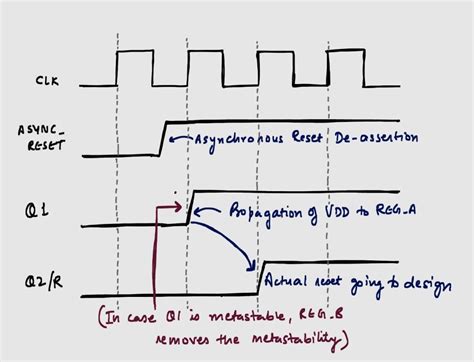 CLK
ASYNC_
RESET
Asynchronous Reset De-assertion
Q1
Propagation of VDD to REG_A
Q2/R
Actual reset going to design
(In case Q1 is metastable, REG_B
removes the metastability)